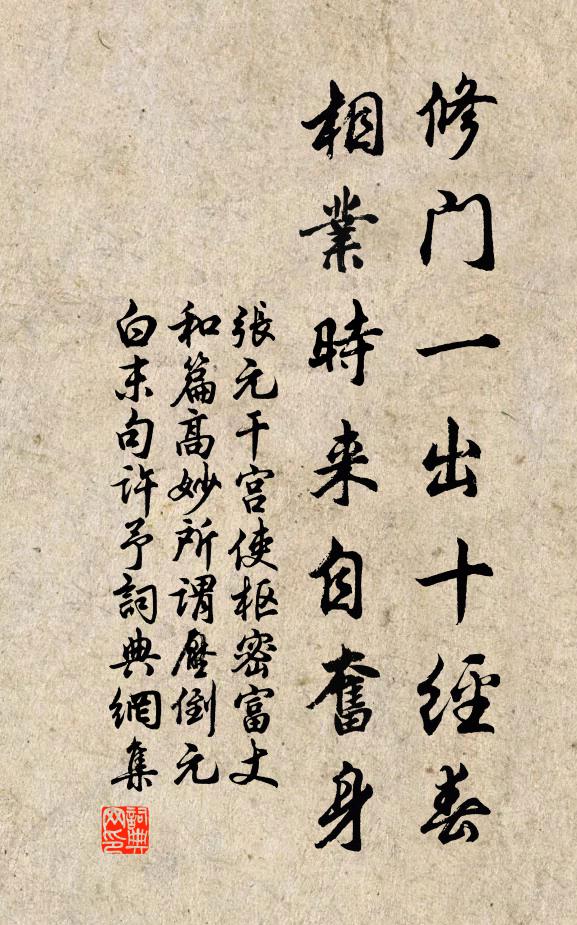 修门一出十經春
相業時来自奮身
張元干宫使枢密富丈
和篇高妙所謂壓倒元
白末句许予詞典網集
詞典网印